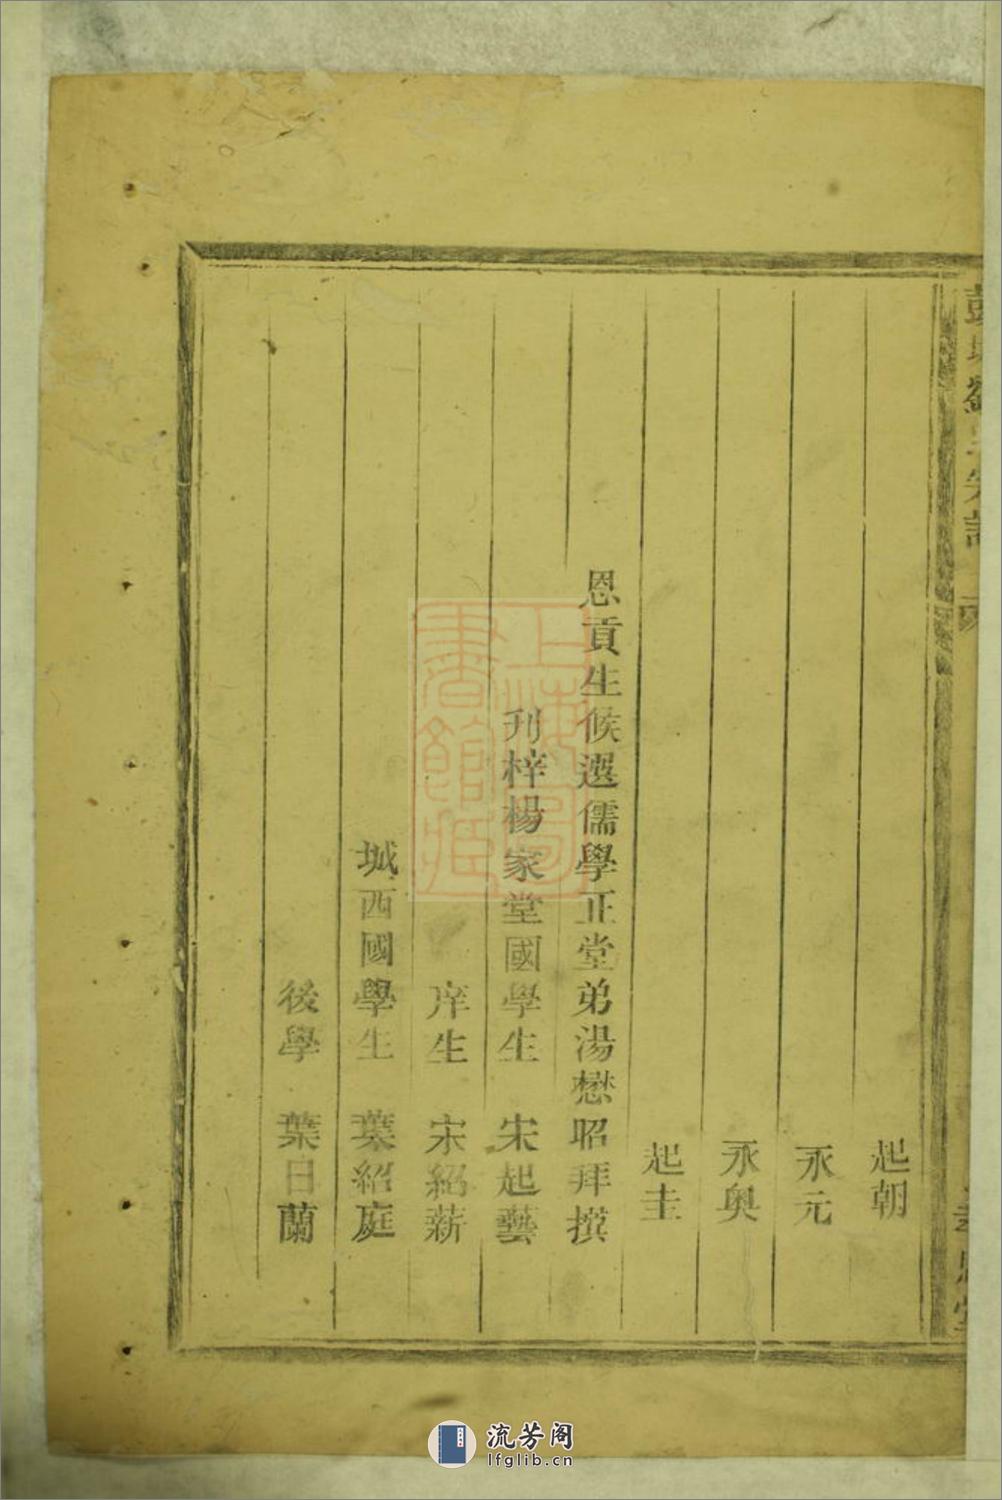 起朝
永元
永奥
起圭
恩貢生候選儒學正堂弟湯懋昭拜撰
刋梓楊家堂國學生 宋起藝
庠生 宋紹薪
城西國學生 葉紹庭
後學 葉日蘭
上海圖書館藏
流芳阁
lfglib.cn